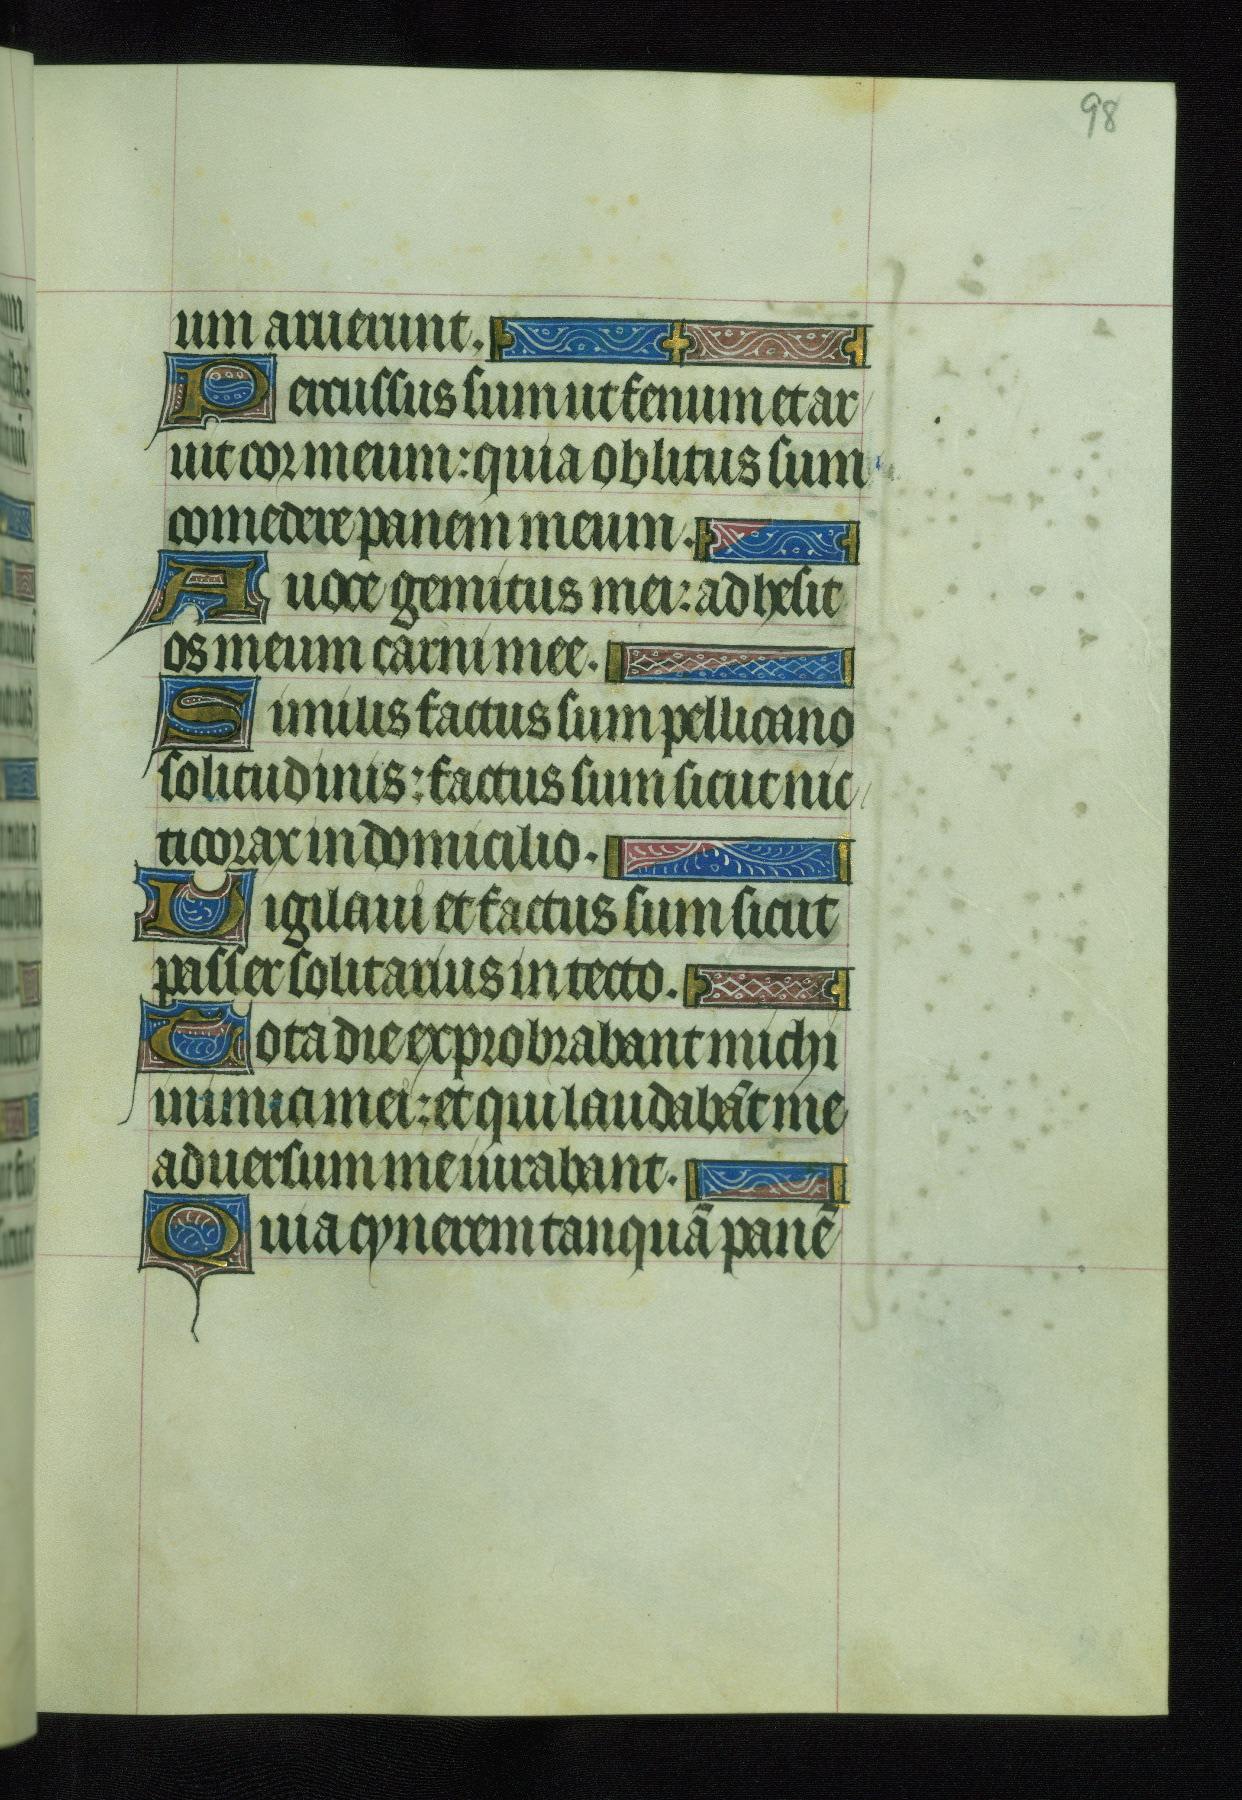 98
um aruerunt.
Percussus sum ut fenum et ar
uit cor meum: quia oblitus sum
comedere panem meum.
A uoce gemitus mei: adhesit
os meum carni mee.
Similis factus sum pellicano
solitudinis: factus sum sicut nic
ticorax in domicilio.
Uigilaui et factus sum sicut
passer solitarius in tecto.
Tota die exprobrabant michi
inimici mei: et qui laudabāt me
aduersum me iurabant.
Quia cynerem tanquā panē